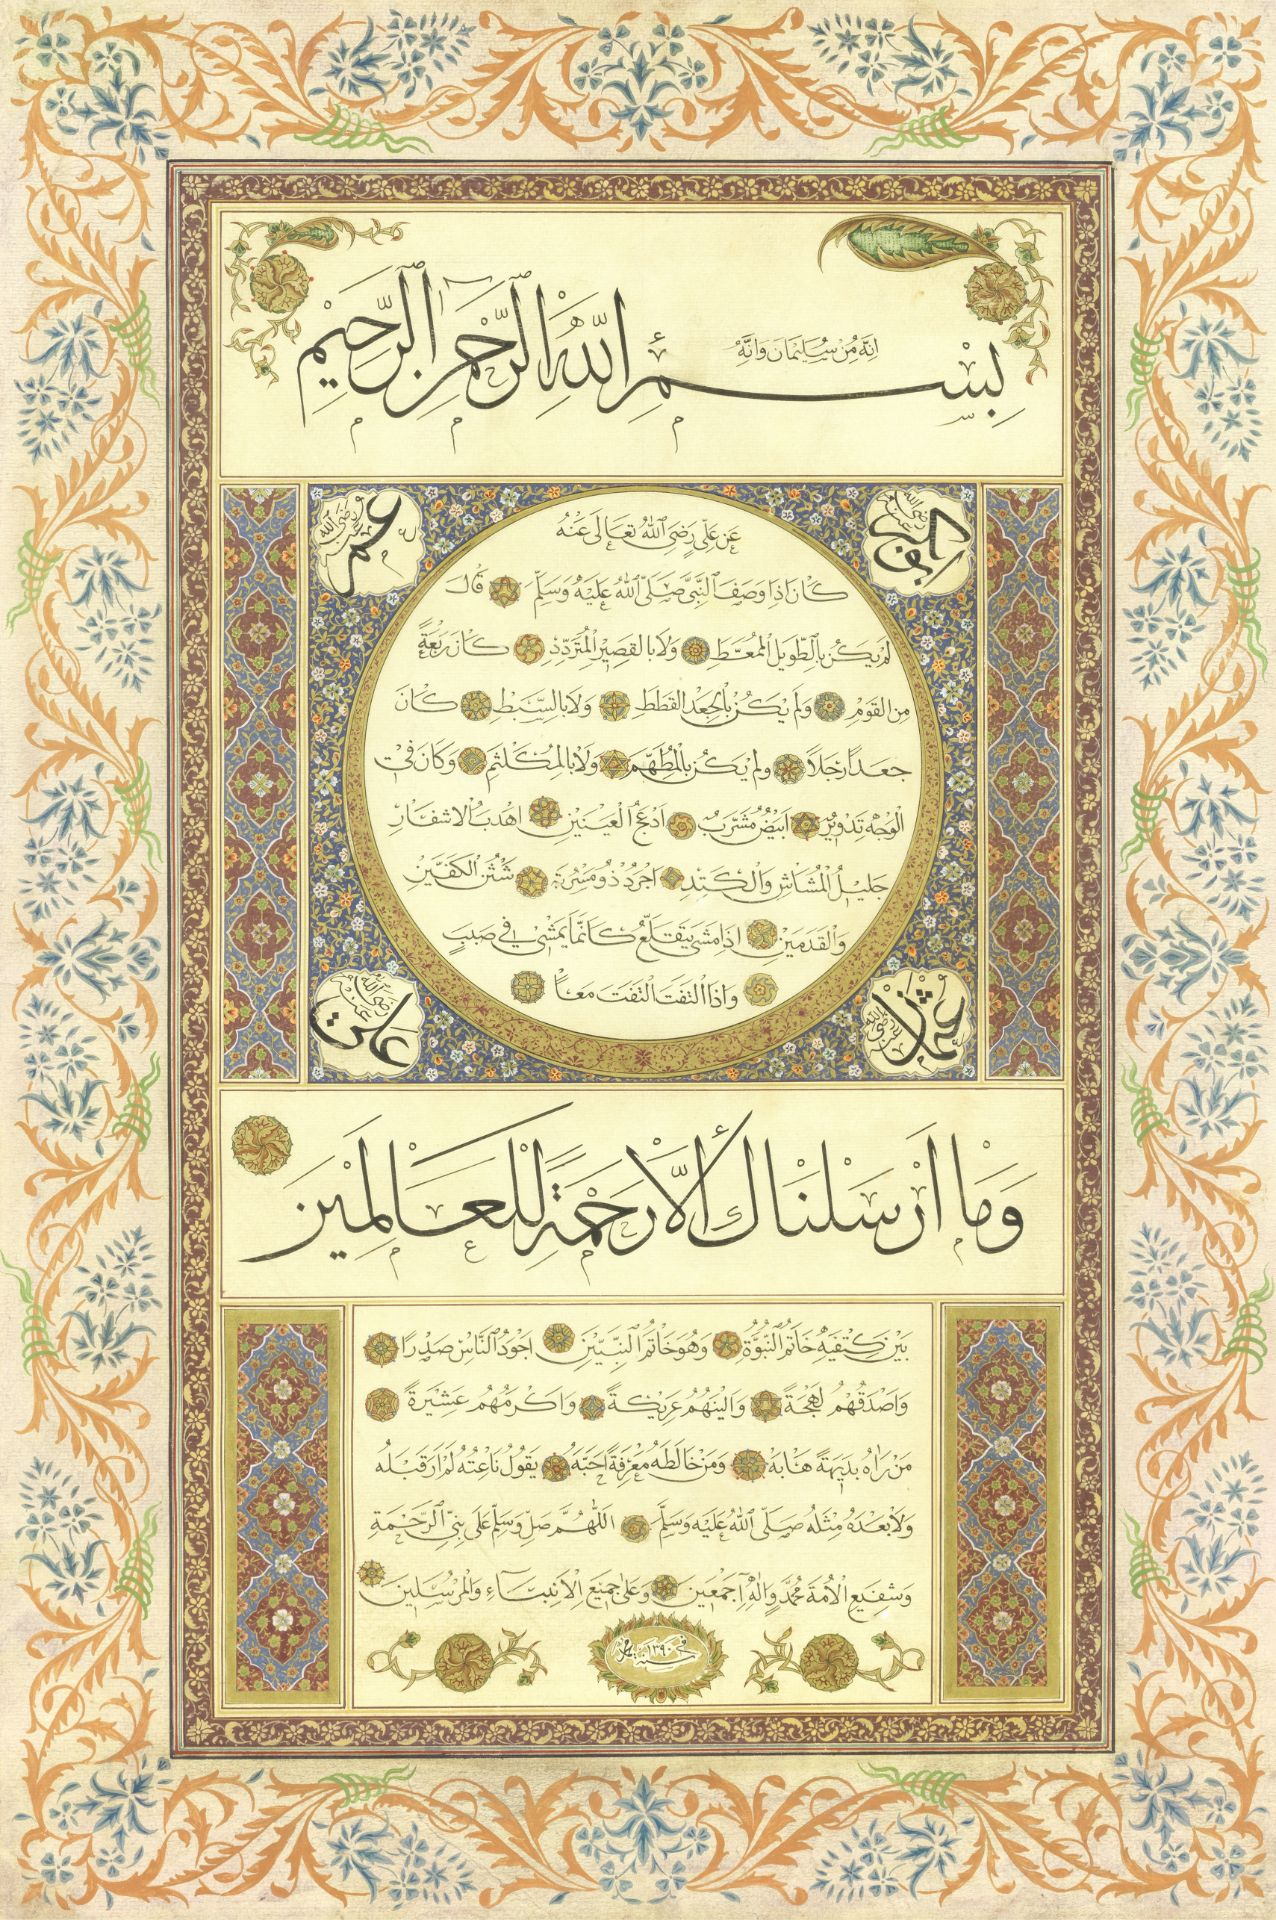 انه من سليمان وانه
بسم الله الرحمن الرحيم
ابو بكر رضي الله عنه
عمر رضي الله عنه
عن علي رضي الله تعالى عنه
كان اذا وصف النبي صلى الله عليه وسلم قال
لم يكن بالطويل الممغط ولا بالقصير المتردد كان ربعة
من القوم ولم يكن بالجعد القطط ولا بالسبط كان
جعدا رجلا ولم يكن بالمطهم ولا بالمكلثم وكان في
الوجه تدوير ابيض مشرب ادعج العينين اهدب الاشفار
جليل المشاش والكتد اجرد ذو مسربة شثن الكفين
والقدمين اذا مشى يتقلع كانما يمشي في صبب
واذا التفت التفت معا
عثمان رضي الله عنه
علي رضي الله عنه
وما ارسلناك الا رحمة للعالمين
بين كتفيه خاتم النبوة وهو خاتم النبيين اجود الناس صدرا
واصدقهم لهجة والينهم عريكة واكرمهم عشيرة
من رآه بديهة هابه ومن خالطه معرفة احبه يقول ناعته لم ار قبله
ولا بعده مثله صلى الله عليه وسلم اللهم صل وسلم على نبي الرحمة
وشفيع الامة محمد واله اجمعين وعلى جميع الانبياء والمرسلين
في سنة ١٣٩٠